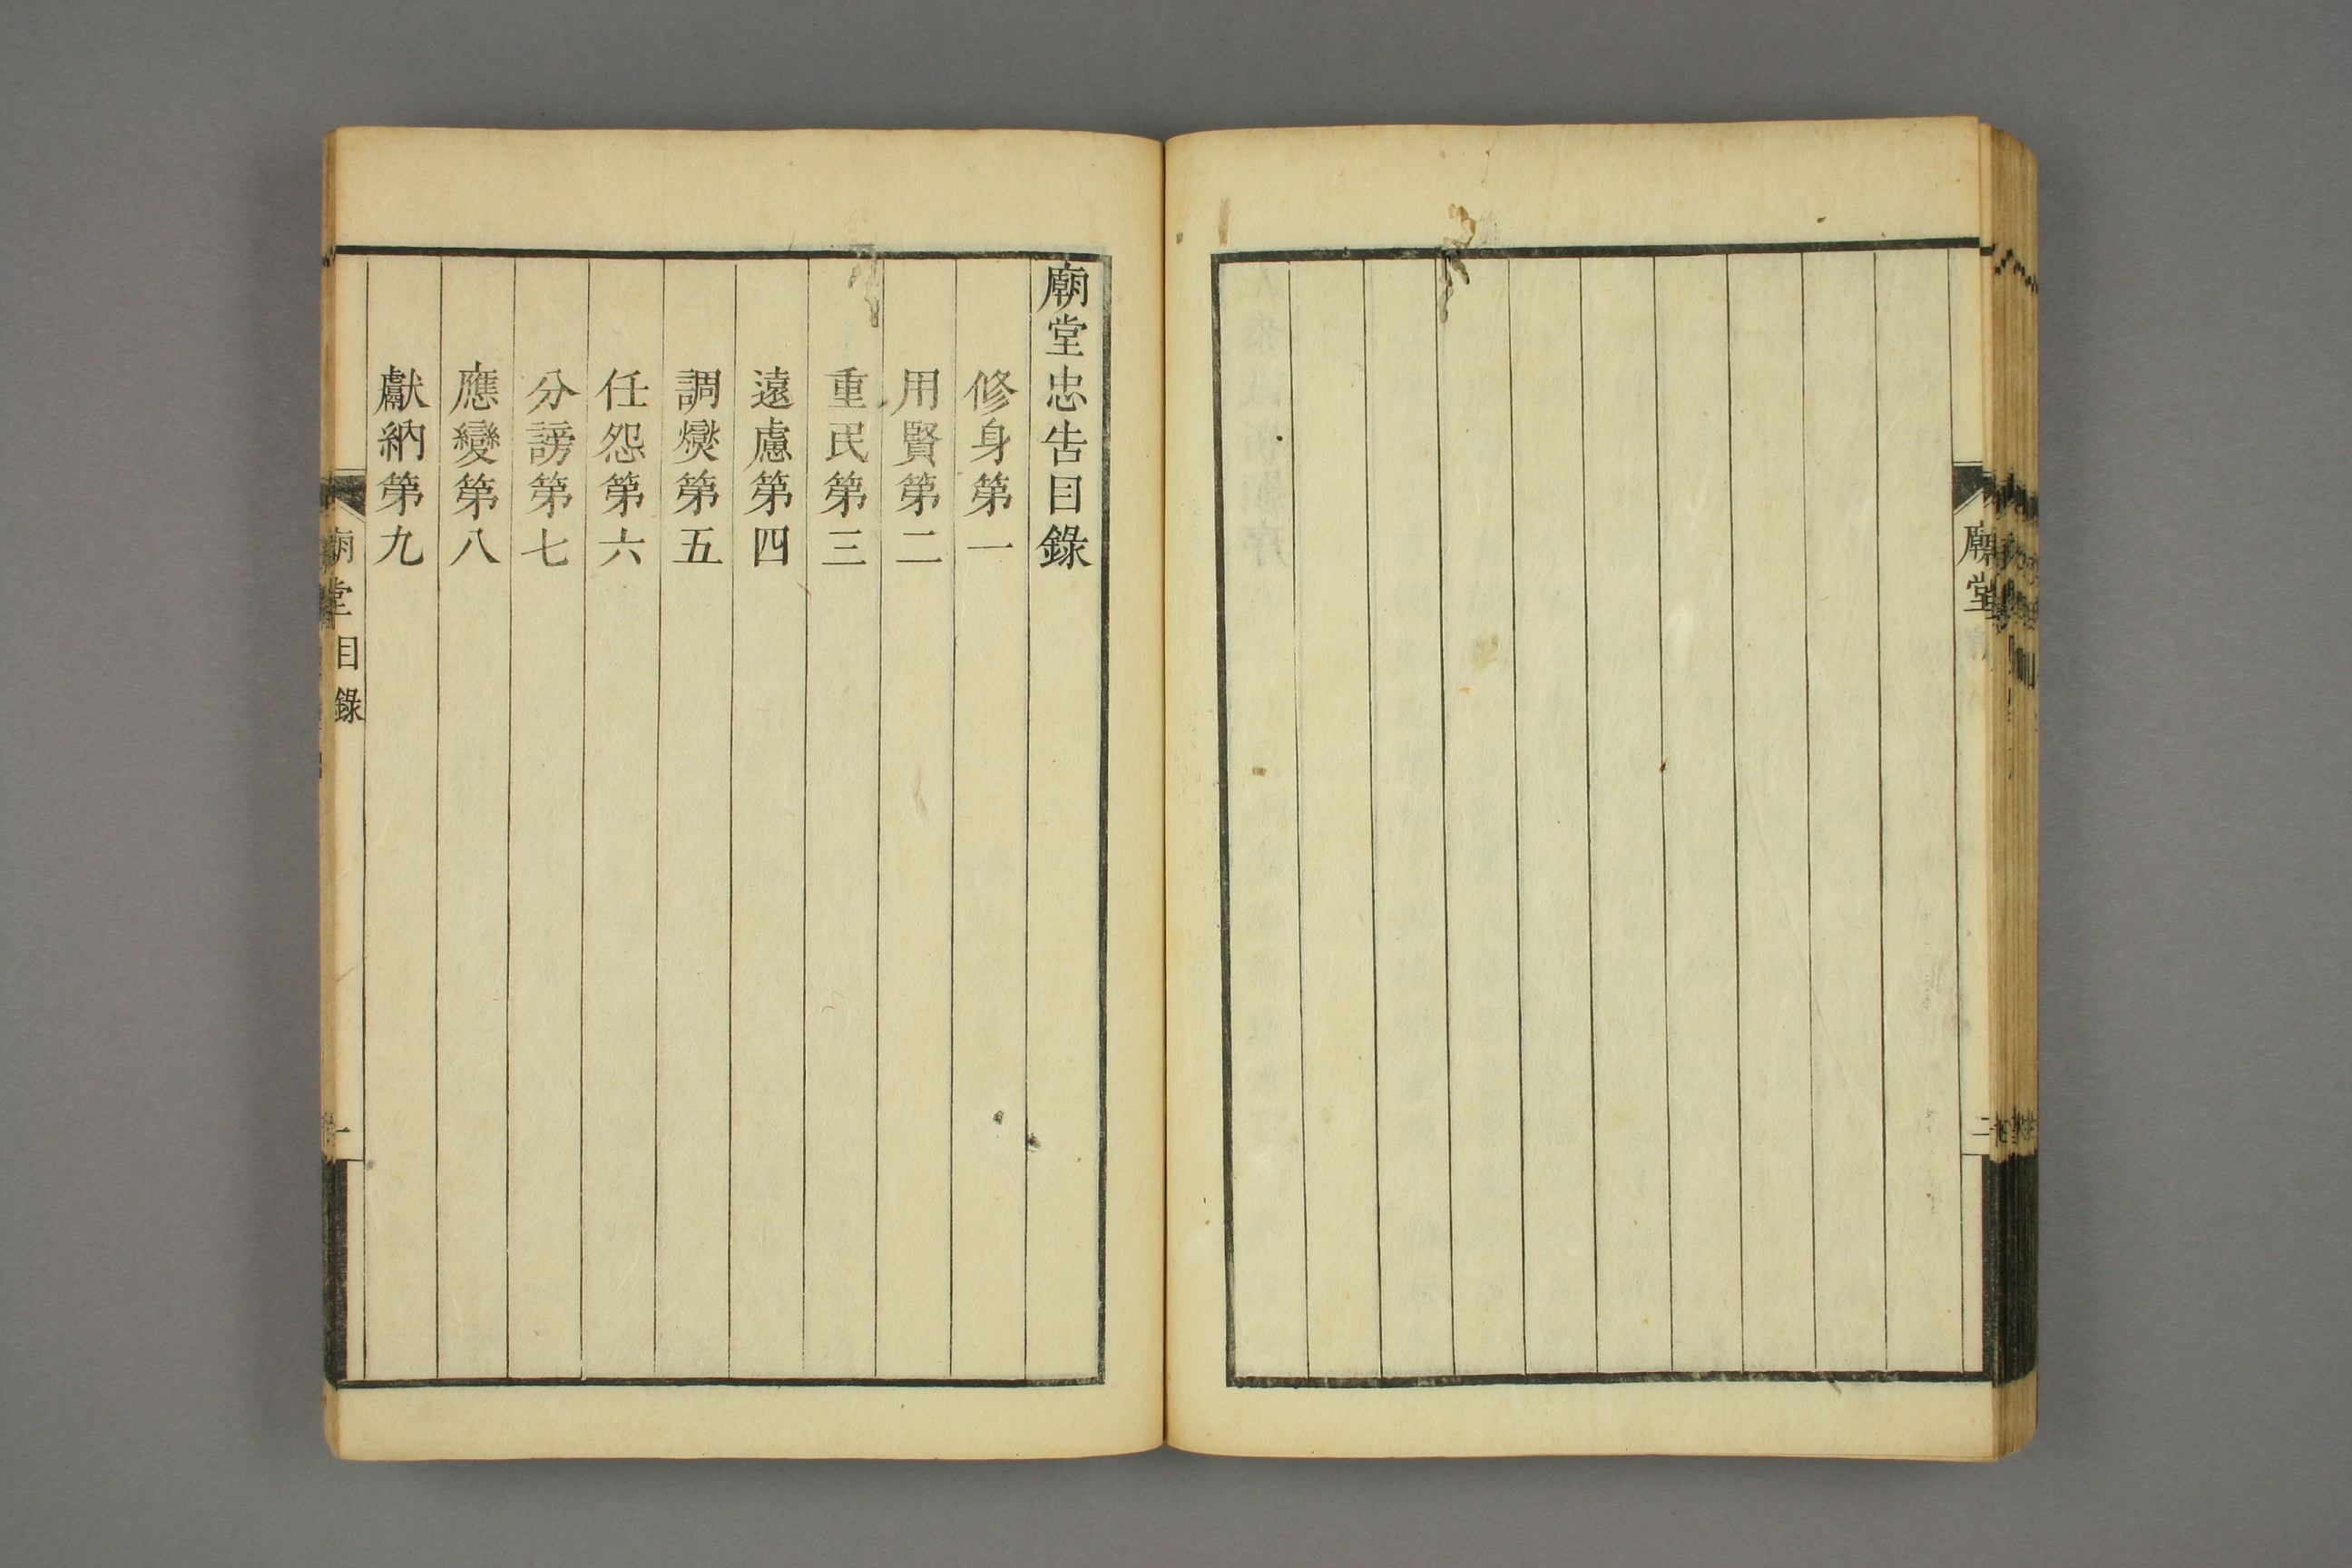 廟堂
二
廟堂忠告目錄
修身第一
用賢第二
重民第三
遠慮第四
調燮第五
任怨第六
分謗第七
應變第八
獻納第九
廟堂目錄
一